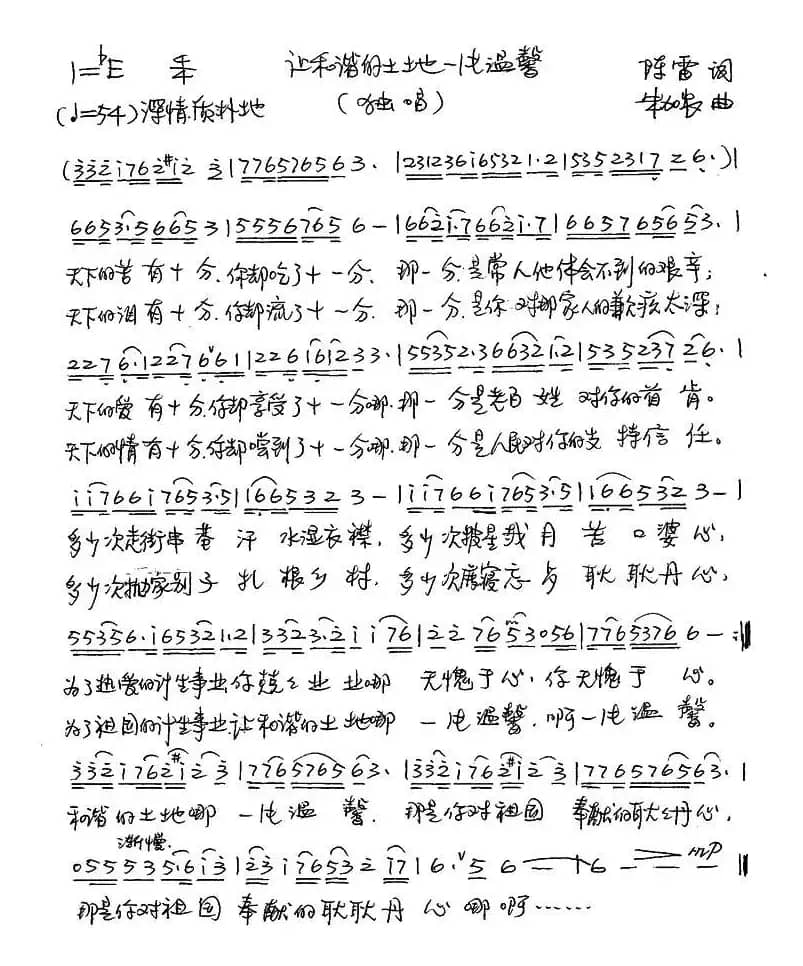 1=♭E 让和谐的土地一片温馨 陈雷 词
(♩=54)深情质朴地 (独唱) 曲
(3321762#12 3|77657656 3.|2312361653212|53523172 6.)|
6653.56653|55556765 6—|6621.76621.7|66576565 3.|
天下的苦有十分.你却吃了十一分. 那一分是常人他体会不到的艰辛；
天下的泪有十分.你却流了十一分. 那一分是你对娜家人的歉疚太深；
2276.1227661|226161233.|55352.3663212|535237 26.|
天下的爱有十分.你却享受了十一分哪.那一分是老百姓对你的首肯。
天下的情有十分.你却嚐到了十一分哪.那一分是人民对你的支持信任。
1176617653.5|16653 2 3—|11176617653.5|1665323—|
多少次走街串巷汗水湿衣襟，多少次披星戴月苦口婆心，
多少次抛家别子扎根乡村.多少次废寝忘食耿耿丹心，
55356.1653212|3323.21176|227653056|7765376 6—:‖
为了热爱的计生事业你兢兢业业哪 无愧于心，你无愧于心。
为了祖国的计生事业让和谐的土地哪 一片温馨.啊一片温馨。
3321762#123|77657656 3.|3321762#123|77657656 3.|
和谐的土地哪一片温馨. 那是你对祖国奉献的耿耿丹心，
渐慢.
0555 3 5.613|2317653217|6.ˇ56—|6———‖
那是你对祖国奉献的耿耿丹心哪啊……